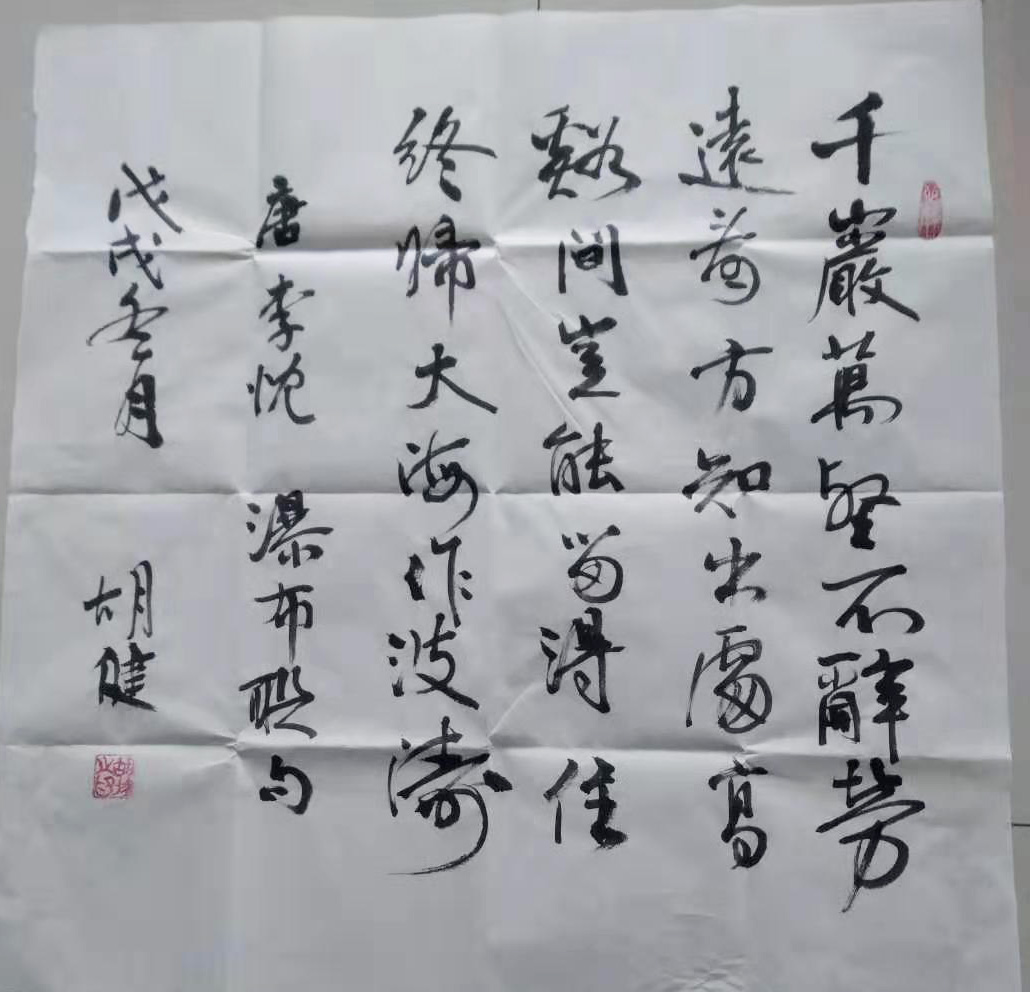 千巖萬壑不辭勞
遠看方知出處高
谿間豈能留得住
終歸大海作波濤
唐李忱 瀑布联句
戊戌冬月 胡健